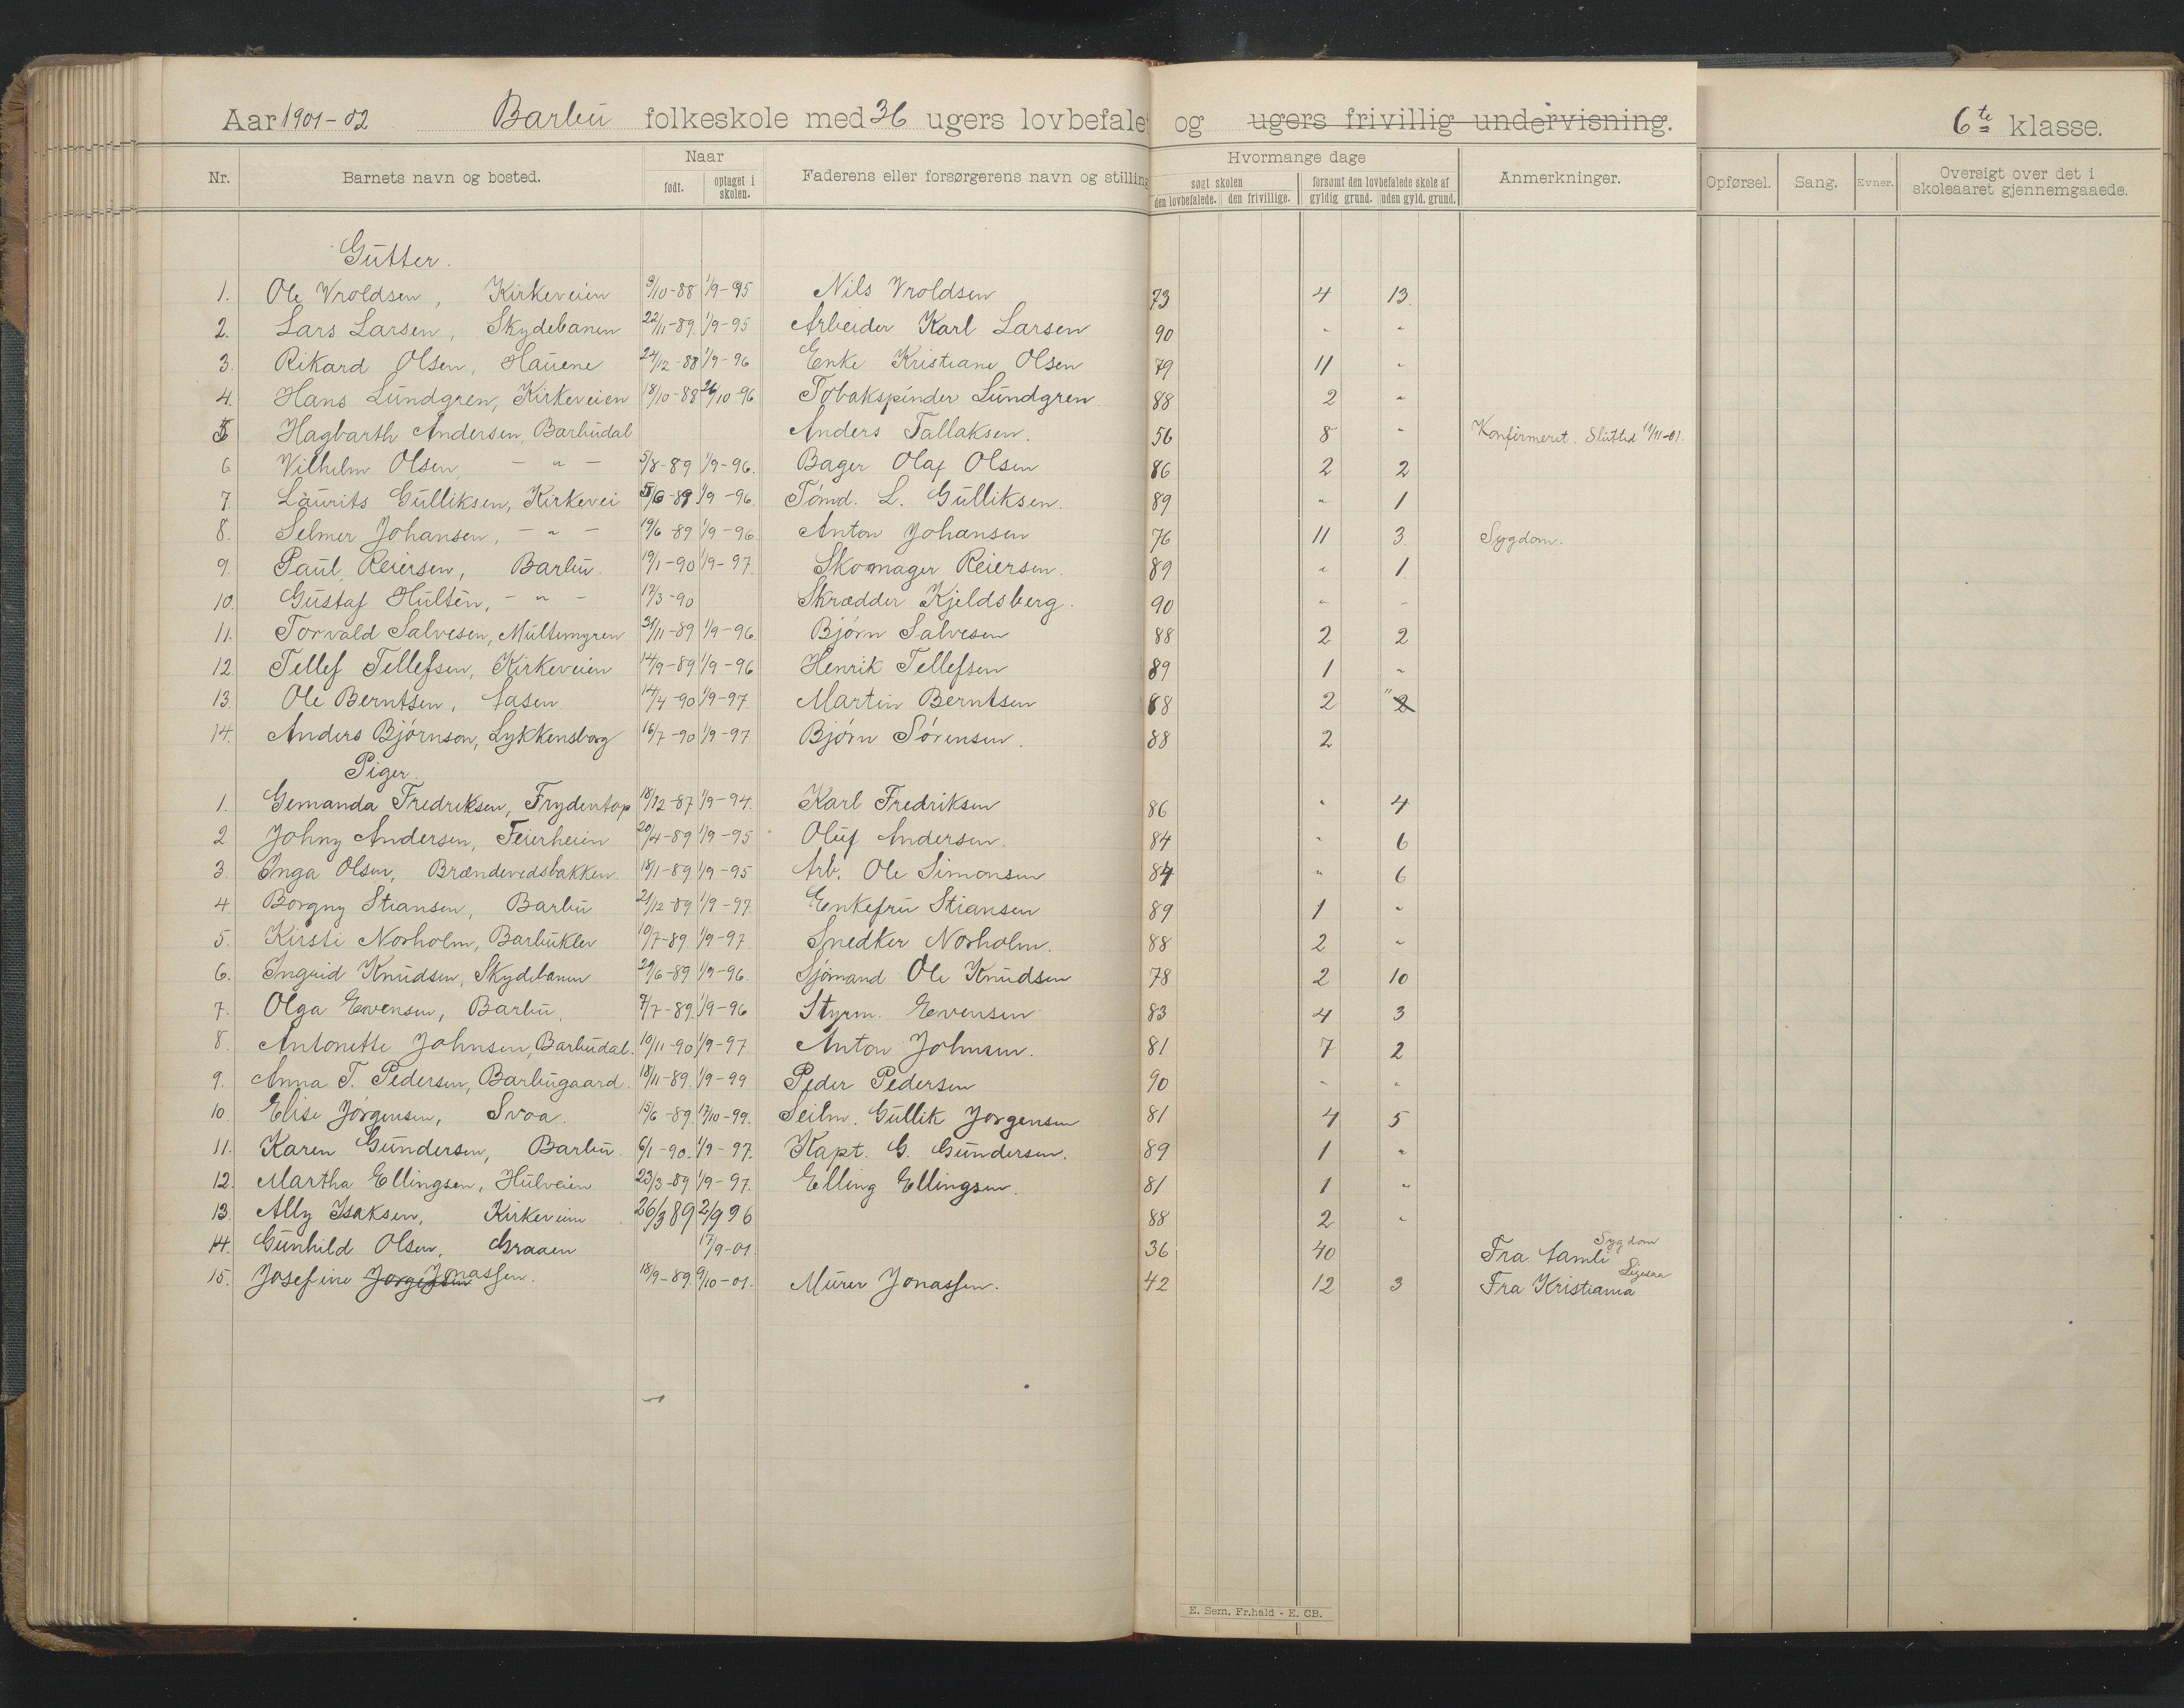 Aar 1901-02 Barbu folkeskole med 36 ugers lovbefalet og ugers frivillig undervisning. 6te klasse.
Nr. Barnets navn og bosted. Naar Faderens eller forsørgerens navn og stilling Hvormange dage Anmerkninger. Opførsel. Sang. Evner. Oversigt over det i skoleaaret gjennemgaaede.
født. optaget i skolen. søgt skolen forsømt den lovbefalede skole af
den lovbefalede. den frivillige. gyldig grund. uden gyld. grund.
Gutter.
1. Ole Vroldsen, Kirkeveien 9/10-88 1/9-95 Nils Vroldsen 73 4 13
2. Lars Larsen, Skydebanen 22/11-89. 1/9-95 Arbeider Karl Larsen 90 " "
3. Rikard Olsen, Hauene 24/12-88 1/9-96 Enke Kristiane Olsen 79 11 "
4. Hans Lundgren, Kirkeveien 18/10-88 26/10-96 Tobakspinder Lundgren 88 2 "
5 Hagbarth Andersen, Barbudal Anders Tallaksen. 56 8 " Konfirmeret. Sluttet 11/11-01.
6 Vilhelm Olsen - " - 5/8-89 1/9-96. Bager Olaf Olsen 86 2 2
7. Laurits Gulliksen, Kirkevei 5/6-89 1/9-96 Tømd. L. Gulliksen. 89 " 1
8. Selmer Johansen, - " - 19/6-89 1/9-96 Anton Johansen 76 11 3 Sygdom.
9. Paul Reiersen, Barbu. 19/1-90 1/9-97 Skomager Reiersen. 89 " 1
10. Gustaf Hultén, - " - 12/3-90 Skrædder Kjeldsberg. 90 " -
11. Torvald Salvesen, Multemyren 21/11-89 1/9-96. Bjørn Salvesen 88 2 2
12. Tellef Tellefsen, Kirkeveien 14/9-89 1/9-96 Henrik Tellefsen 89 1 "
13. Ole Berntsen, Aasen. 14/4-90 1/9-97. Martin Berntsen 88 2 " 2
14. Anders Bjørnson, Lykkensborg 16/7-90 1/9-97. Bjørn Sørensen. 88 2
Piger.
1. Gemanda Fredriksen, Frydentop 18/12-87 1/9-94. Karl Fredriksen 86 " 4
2 Johny Andersen, Feierheien 20/4-89 1/9-95 Oluf Andersen. 84 " 6
3. Inga Olsen, Brændevedsbakken. 18/1-89 1/9-95 Arb. Ole Simonsen 84 " 6
4. Borgny Stiansen, Barbu 21/12-89 1/9-97. Enkefru Stiansen 89 1 "
5. Kirsti Norholm, Barbuklev 10/7-89. 1/9-97 Snedker Norholm. 88 2 "
6. Ingrid Knudsen, Skydebanen 29/6-89 1/9-96. Sjømand Ole Knudsen 78 2 10
7. Olga Evensen, Barbu. 7/7-89. 1/9-96 Styrm. Evensen 83 4 3
8. Antonette Johnsen, Barbudal. 10/11-90 1/9-97. Anton Johnsen. 81 7 2
9. Anna T. Pedersen, Barbugaard. 18/11-89. 1/9-99 Peder Pedersen 90 " "
10. Elise Jørgensen, Svoa. 15/6-89. 17/10-99. Seilm. Gullik Jørgensen 81 4 5
11. Karen Gundersen, Barbu. 6/1-90. 1/9-97. Kapt. G. Gundersen. 89 1 "
12. Martha Ellingsen, Hulveien 23/3-89 1/9-97. Elling Ellingsen. 81 1 "
13. Ally Isaksen, Kirkeveien 26/3 89 2/9 96 88 2 "
14. Gunhild Olsen, Graaen 17/9-01 36 40 Fra Aamli Sygdom
15. Josefine Jørgensen Jonassen. 18/9-89 9/10-01. Murer Jonassen. 42 12 3 Fra Kristiania
E. Sem, Fr.hald - E. CB.